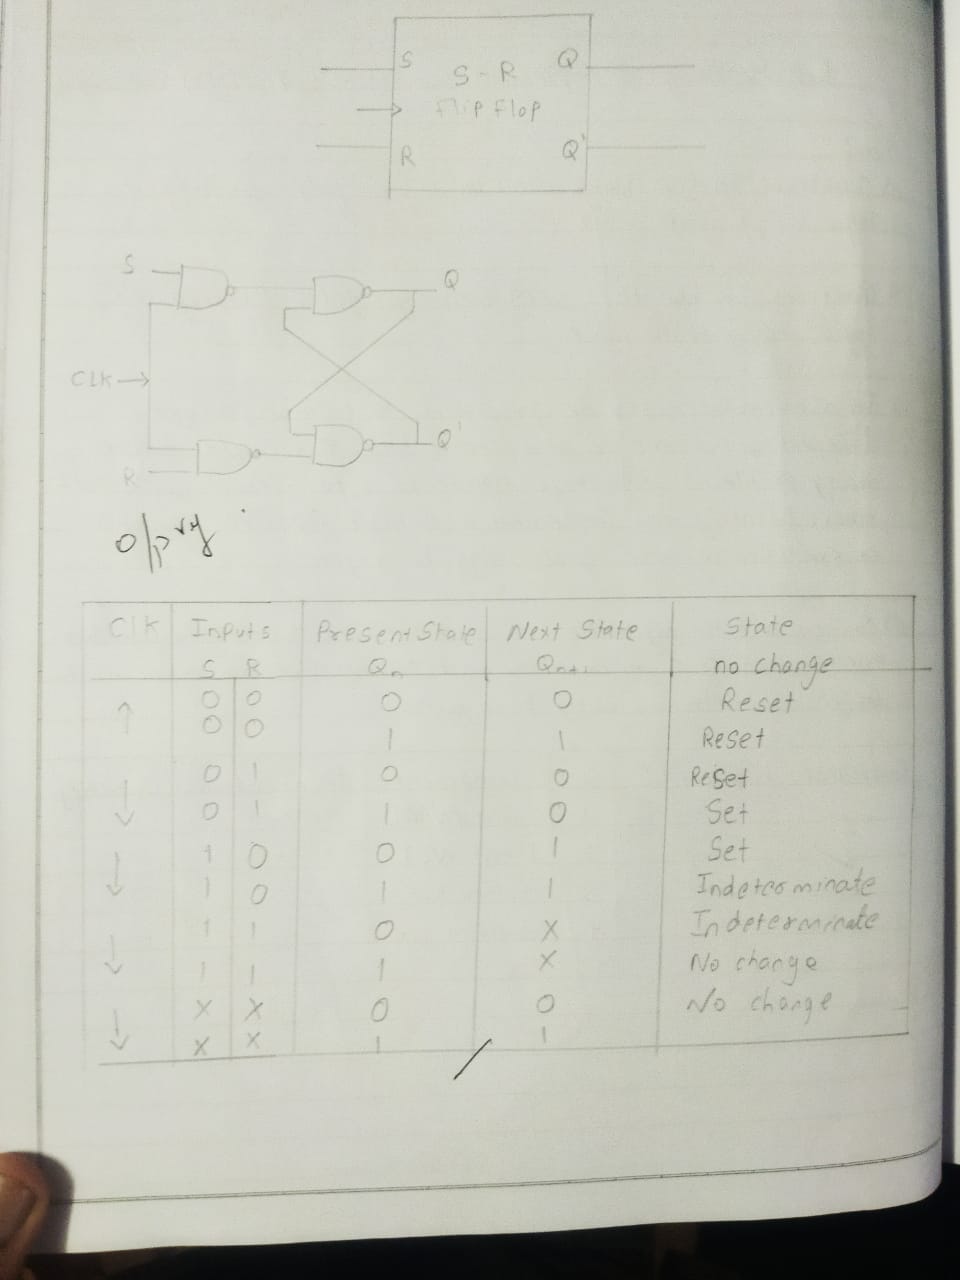 S
S - R
Q
Flip Flop
R
Q'
S
Q
CLK
Q'
R
Clk Inputs Present State Next State State
S R Qn Qn+1 no change
↑ 0 0 0 0 Reset
0 0 1 1 Reset
0 1 0 0 Reset
↓ 0 1 1 0 Set
1 0 0 1 Set
↓ 1 0 1 1 Indeterminate
1 1 0 X Indeterminate
↓ 1 1 1 X No change
X X 0 0 No change
↓ X X 1 1